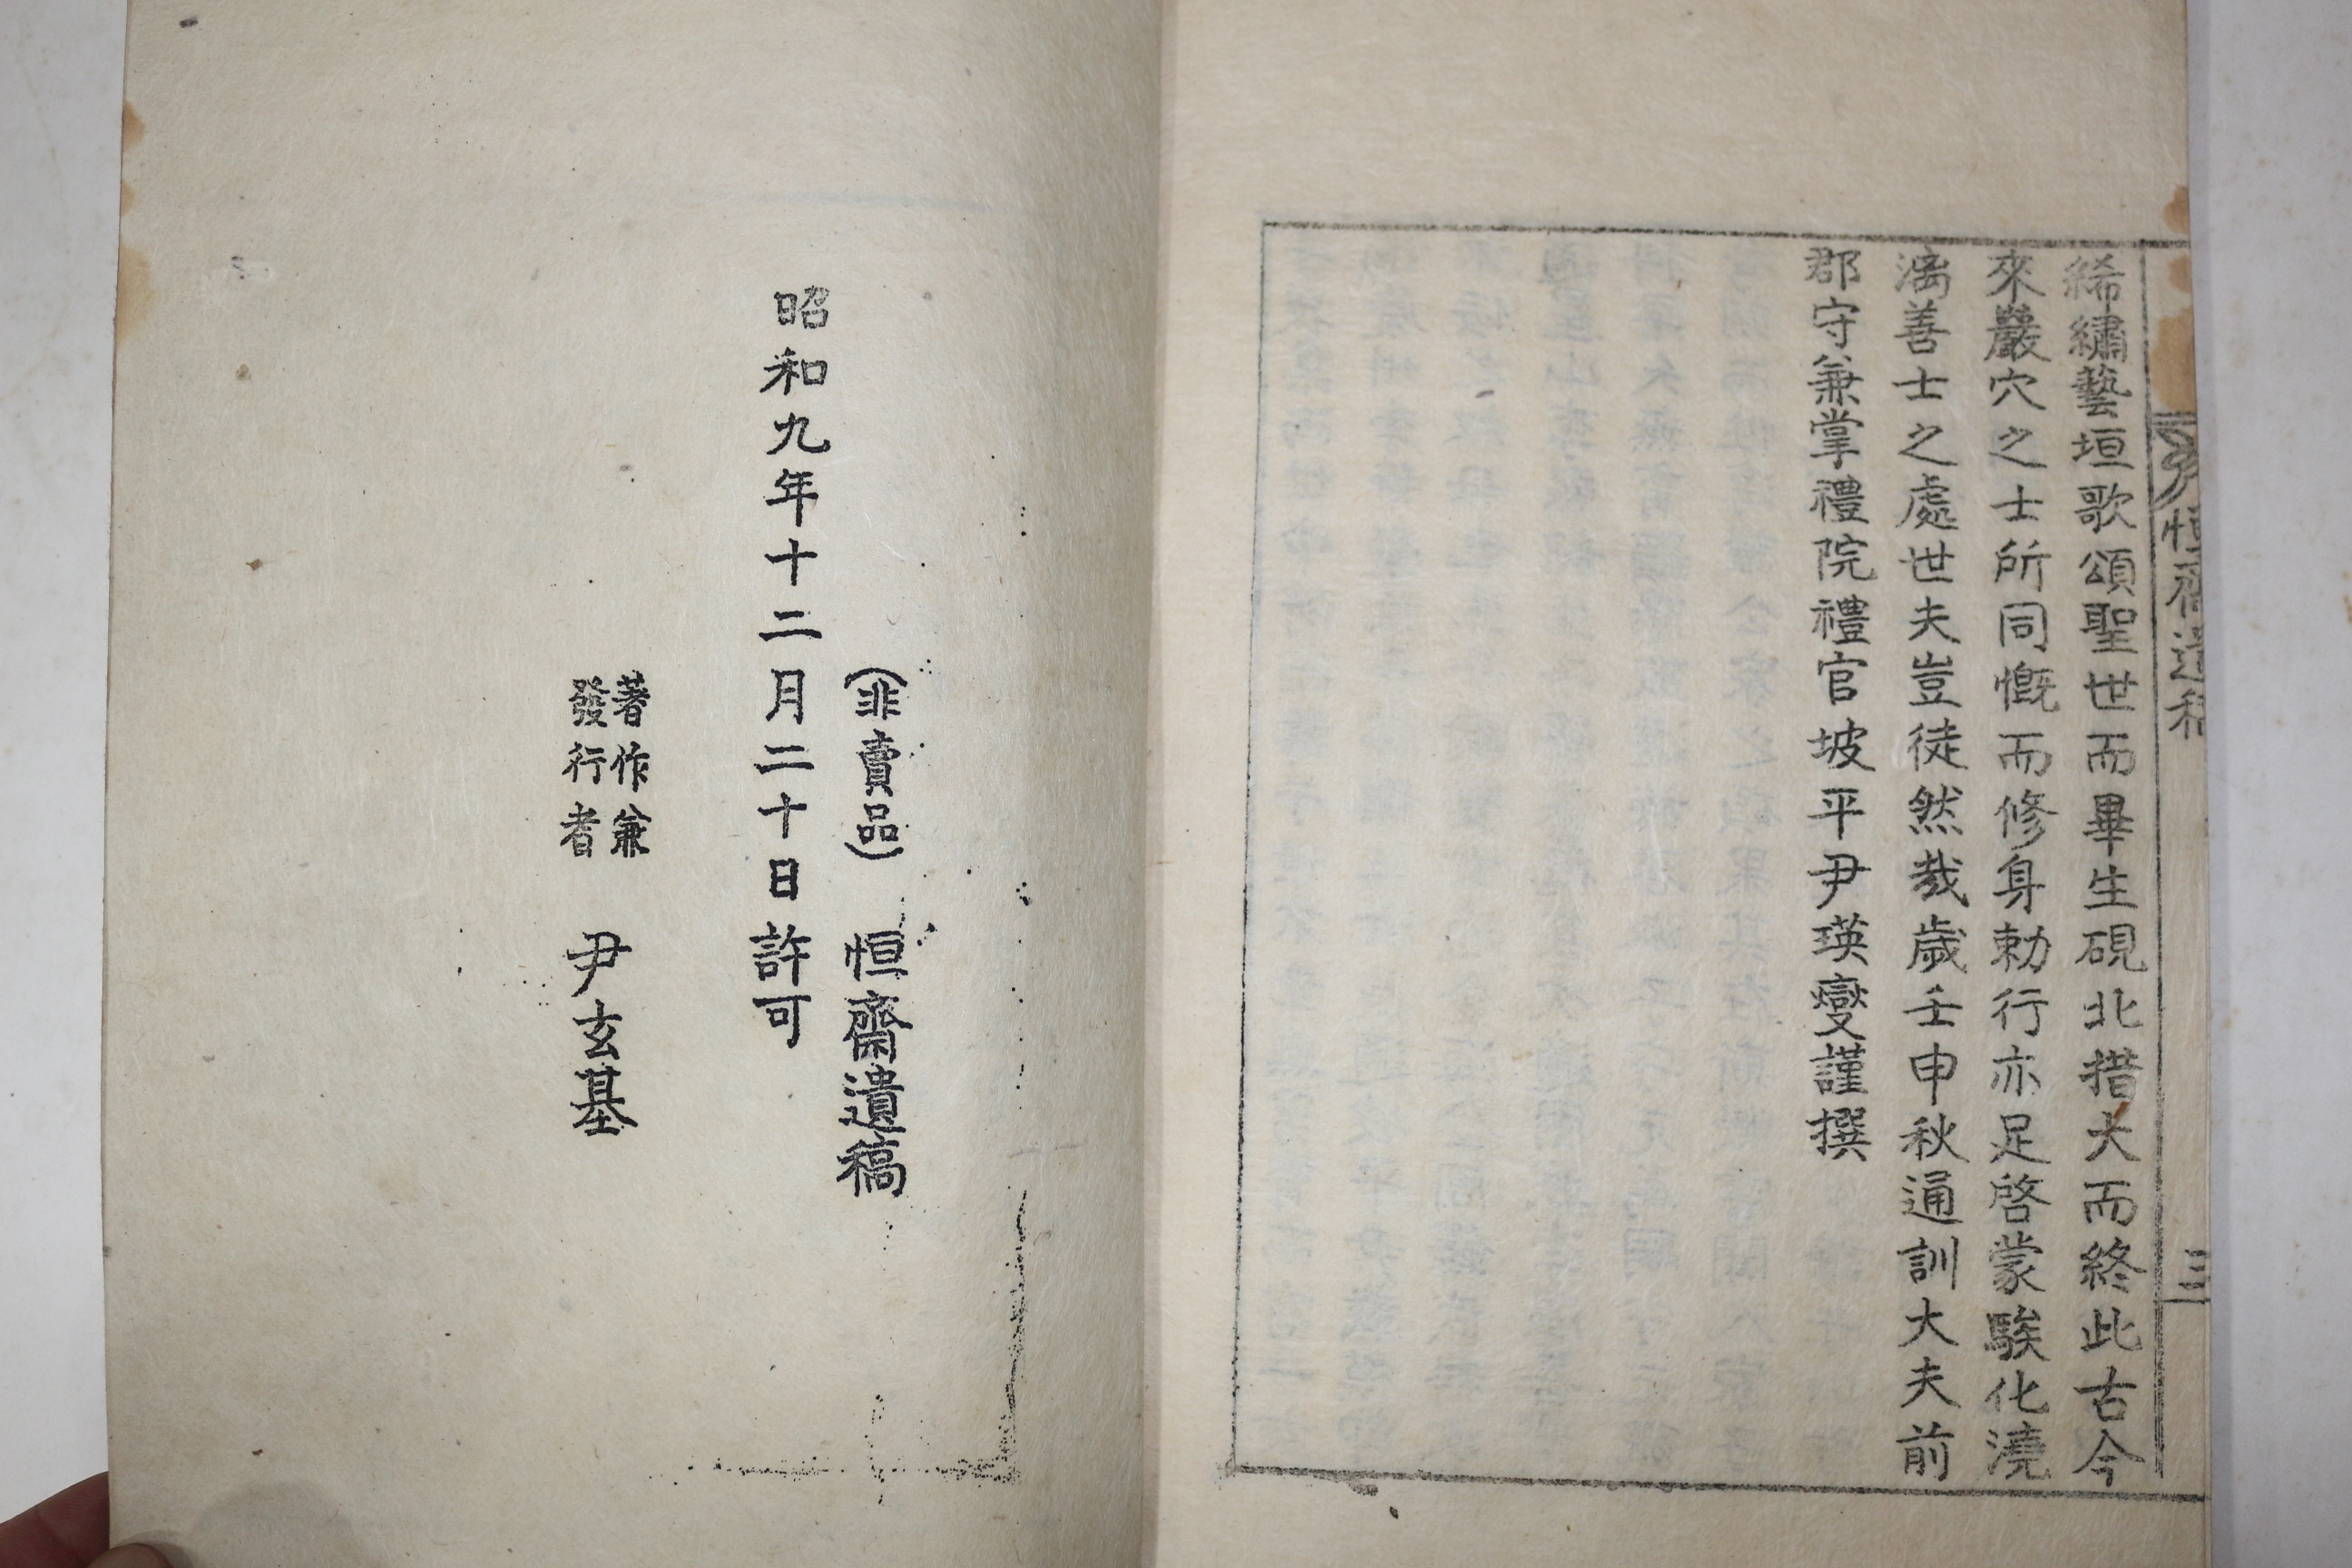 恒齋遺稿
三
絺繡藝垣歌頌聖世而畢生硯北措大而終此古今
來巖穴之士所同慨而修身勅行亦足啓蒙騃化澆
漓善士之處世夫豈徒然哉歲壬申秋通訓大夫前
郡守兼掌禮院禮官坡平尹瑛燮謹撰
(非賣品) 恒齋遺稿
昭和九年十二月二十日許可
著作兼
發行者
尹玄基